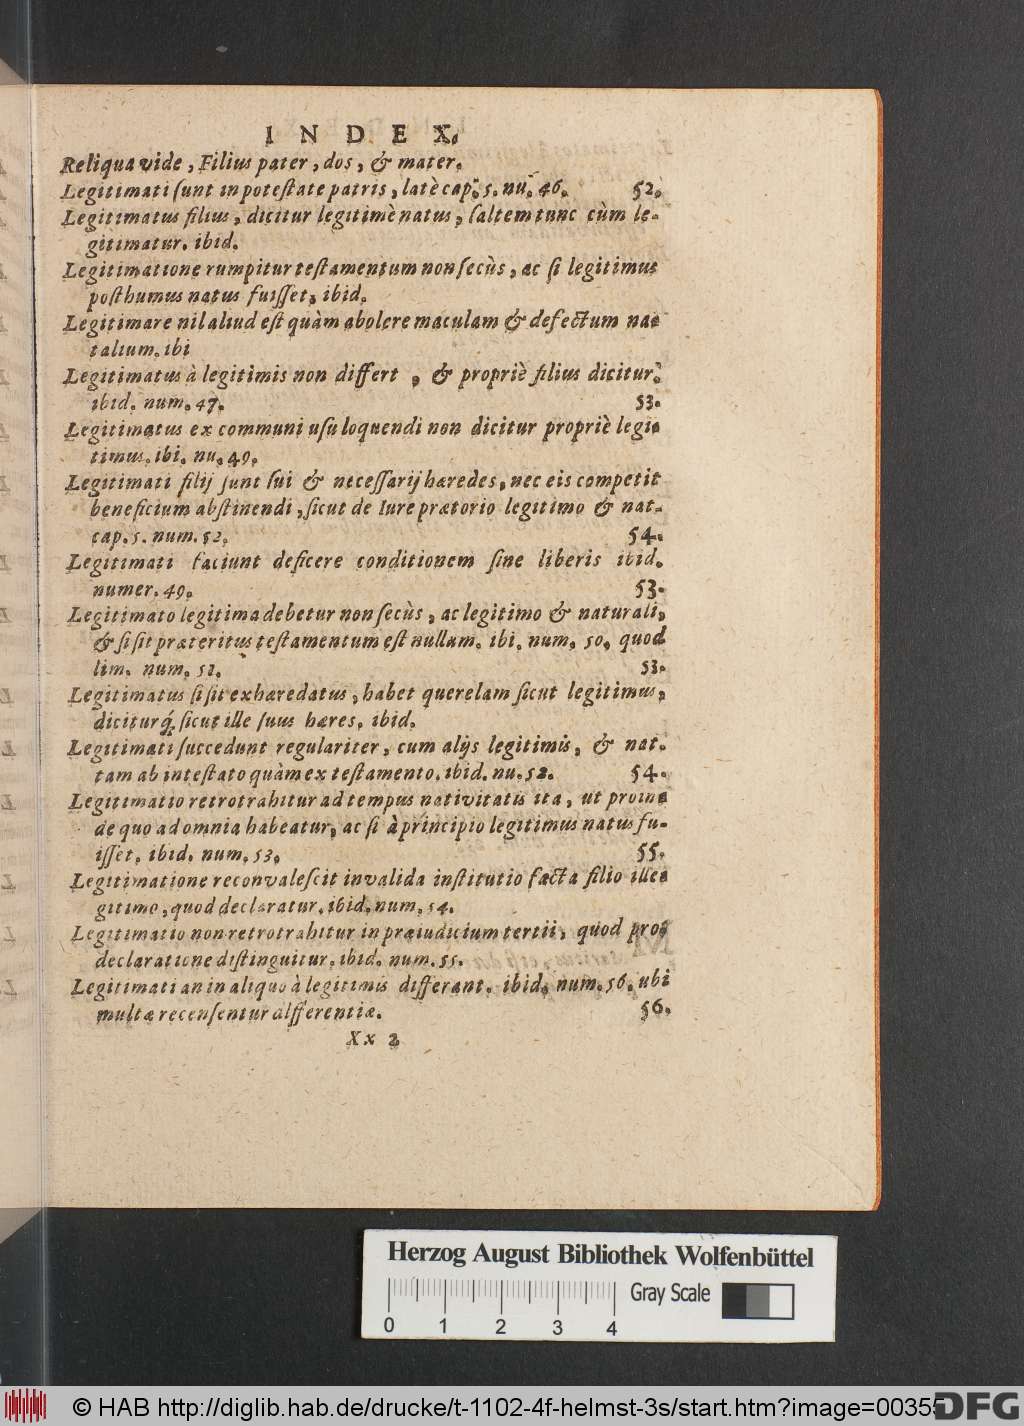 INDEX.
Reliqua vide, Filius pater, dos, & mater.
Legitimati sunt in potestate patris, latè cap. 5. nu. 46. 52.
Legitimatus filius, dicitur legitimè natus, saltem tunc cùm le-
gitimatur. ibid.
Legitimatione rumpitur testamentum non secùs, ac si legitimus
posthumus natus fuisset, ibid.
Legitimare nil aliud est quàm abolere maculam & defectum na-
talium. ibi
Legitimatus à legitimis non differt, & propriè filius dicitur.
ibid. num. 47. 53.
Legitimatus ex communi usu loquendi non dicitur propriè legi-
timus. ibi. nu. 49.
Legitimati filij sunt sui & necessarij hæredes, nec eis competit
beneficium abstinendi, sicut de Iure prætorio legitimo & nat-
cap. 5. num. 52. 54.
Legitimati faciunt deficere conditionem sine liberis ibid.
numer. 49. 53.
Legitimato legitima debetur non secùs, ac legitimo & naturali,
& si sit præteritus testamentum est nullum. ibi. num. 50. quod
lim. num. 51. 53.
Legitimatus si sit exhæredatus, habet querelam sicut legitimus,
diciturq́; sicut ille suus hæres. ibid.
Legitimati succedunt regulariter, cum alijs legitimis, & nat.
tam ab intestato quàm ex testamento. ibid. nu. 52. 54.
Legitimatio retrotrahitur ad tempus nativitatis ita, ut proin-
de quo ad omnia habeatur, ac si à principio legitimus natus fu-
isset. ibid. num. 53. 55.
Legitimatione reconvalescit invalida institutio facta filio ille-
gitimo, quod declaratur. ibid. num. 54.
Legitimatio non retrotrahitur in præiudicium tertii, quod pro-
declaratione distinguitur. ibid. num. 55.
Legitimati an in aliquo à legitimis differant. ibid. num. 56. ubi
multæ recensentur differentiæ. 56.
Xx 2
Herzog August Bibliothek Wolfenbüttel
Gray Scale
0 1 2 3 4
© HAB http://diglib.hab.de/drucke/t-1102-4f-helmst-3s/start.htm?image=00355
DFG